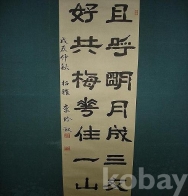 且呼明月成三友
好共梅花住一山
戊辰仲秋
kobay